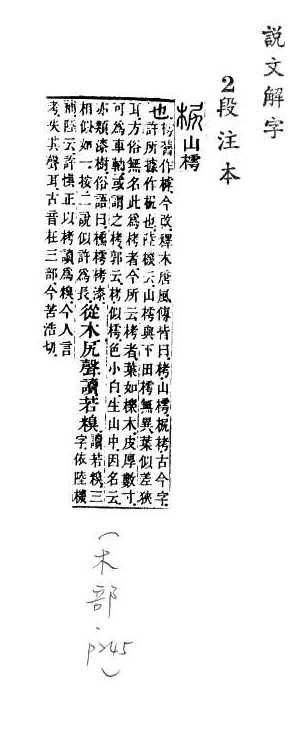 説文解字
2段注本
𣐊山樗
也樗舊作㯉今改釋木唐風傳皆曰栲山樗𣐊栲古今字
許所據作𣐊也陸機云山樗與下田樗無異葉似差狹
耳方俗無名此爲栲者今所云栲者葉如櫟木皮厚數寸
可爲車軸或謂之栲郭云栲似樗色小白生山中因名云
亦類漆樹俗語曰櫄樗栲漆
相似如一按二說似許爲長從木尻聲讀若糗讀若糗三字依陸機
補陸云許愼正以栲讀爲糗今人言
考失其聲耳古音在三部今苦浩切
(木部
p245)